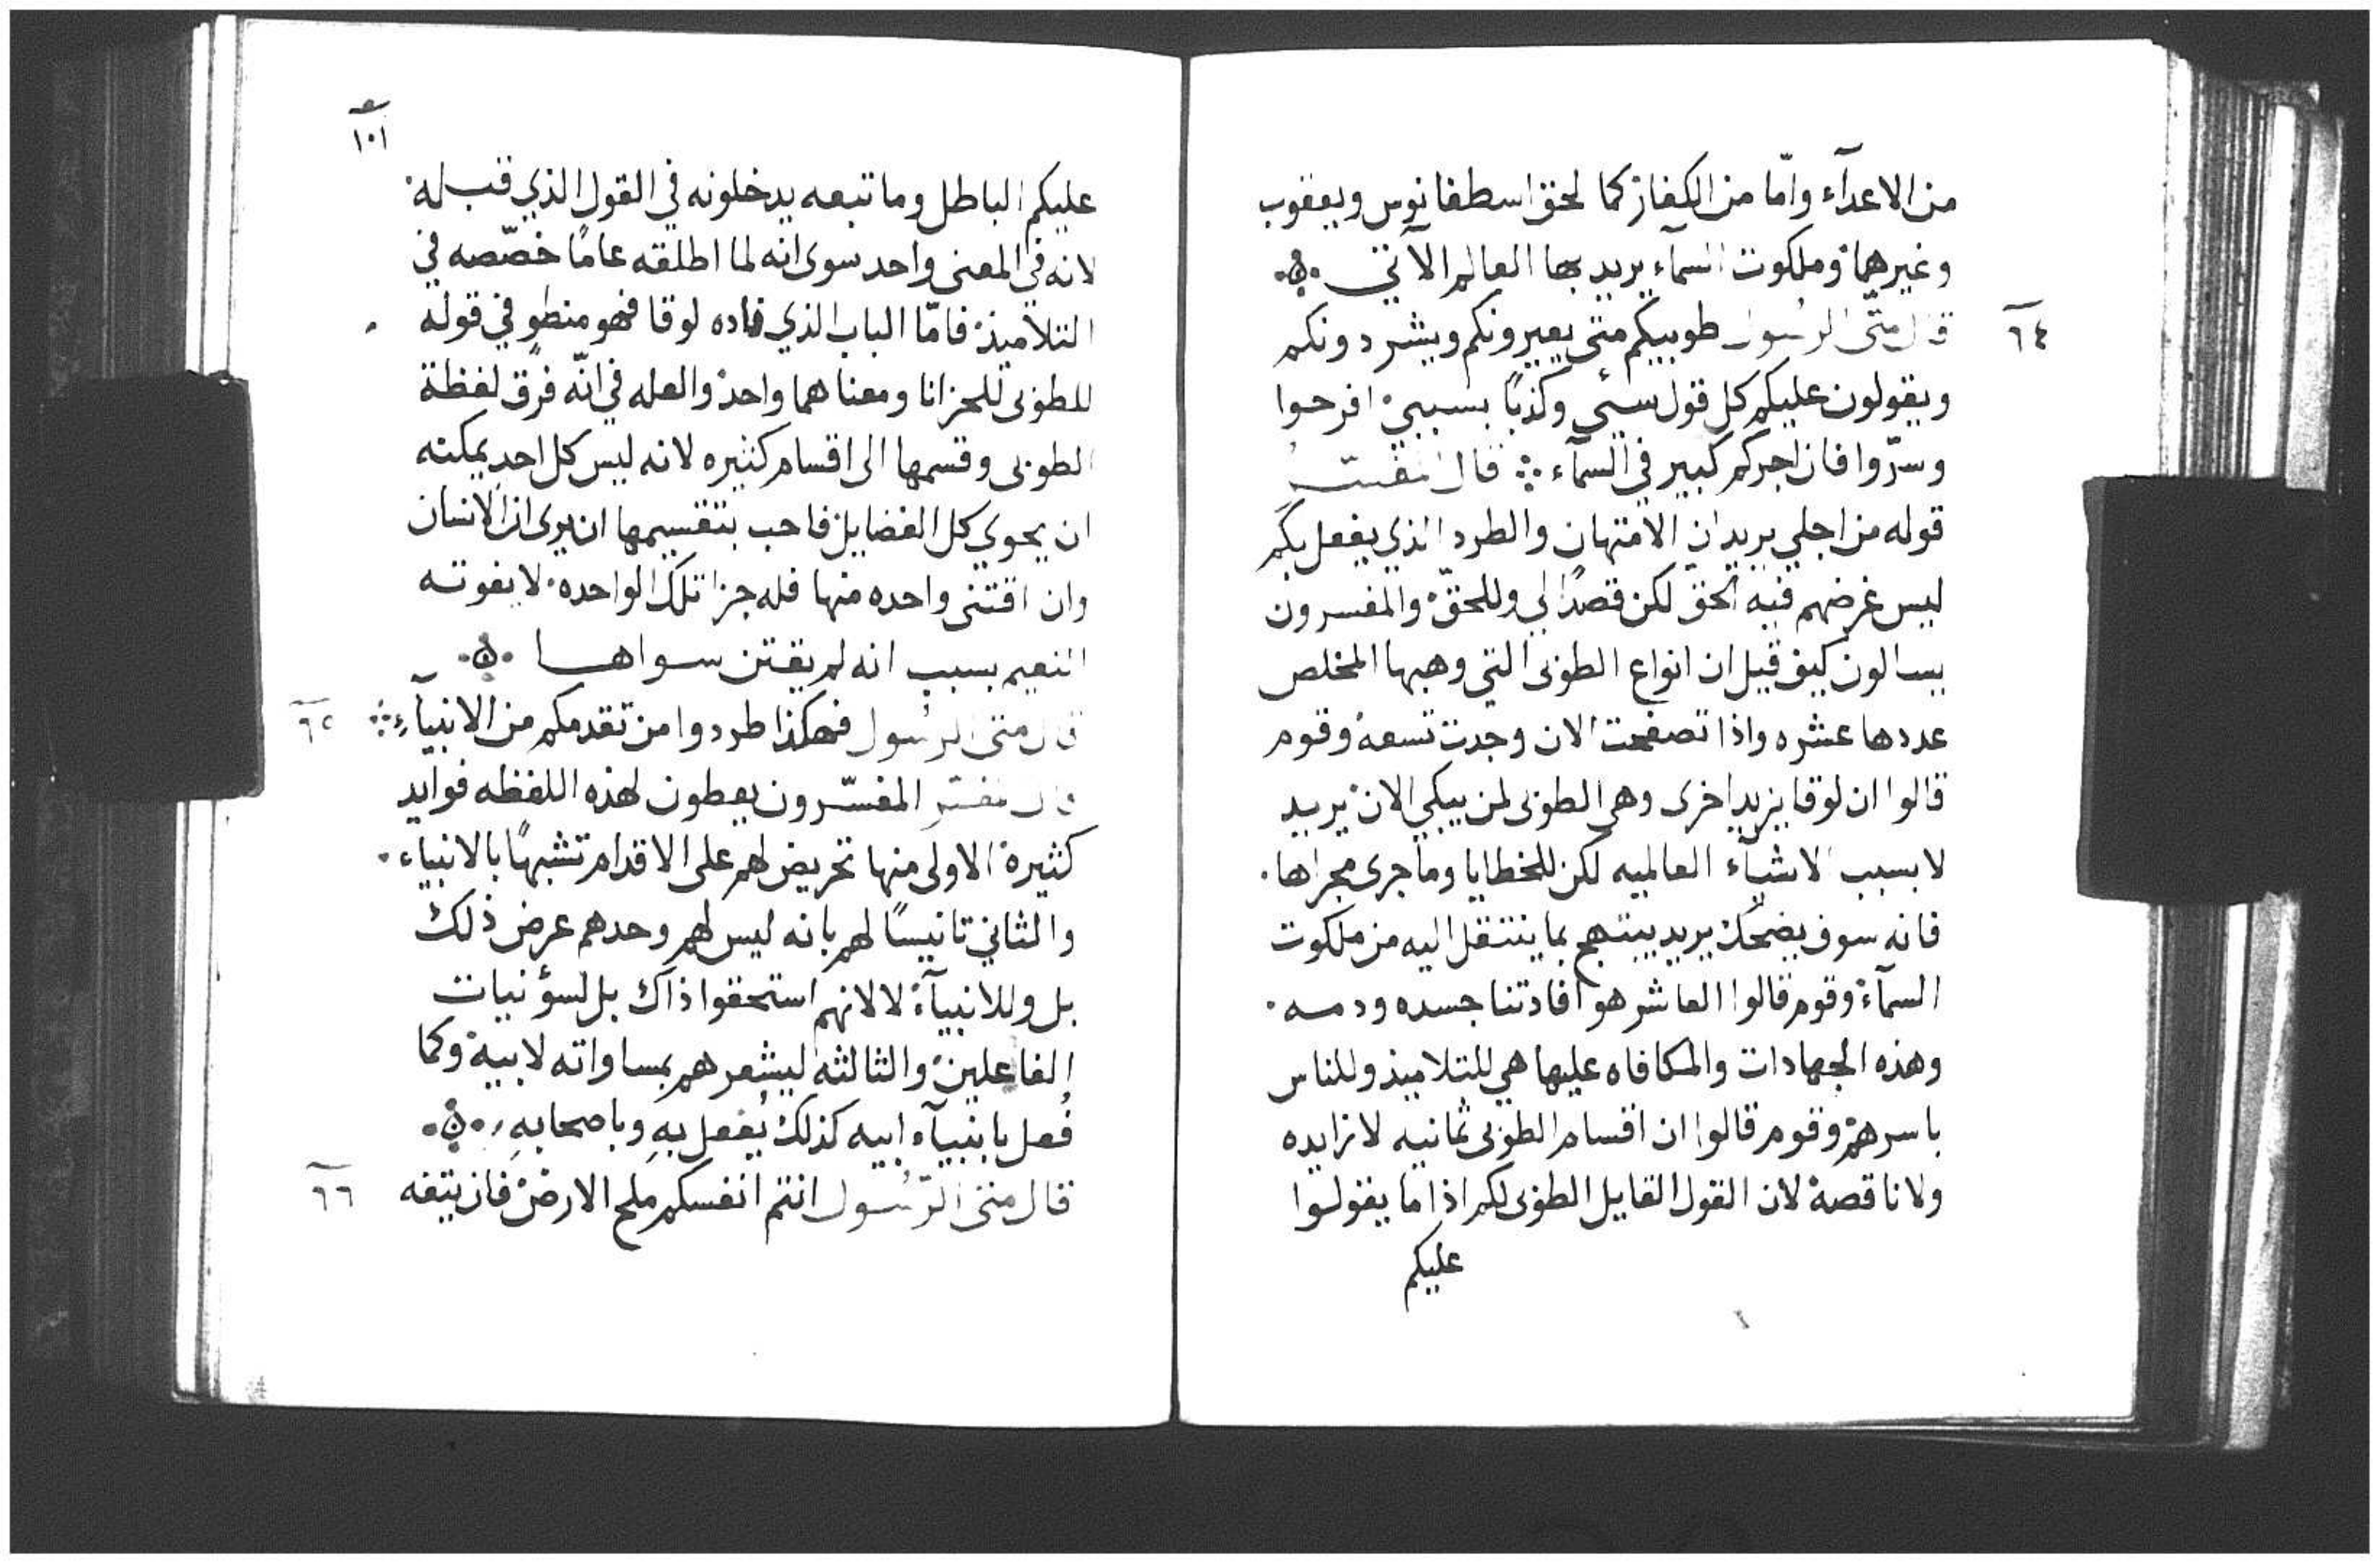 من الاعدآء وامّا من الكفار كما لحق اسطفانوس ويعقوب
وغيرهما وملكوت السمآء يريد بها العالم الآتي
٦٤
قال متّى الرسول طوبيكم متى يعيرونكم ويشردونكم
ويقولون عليكم كل قول سيىء وكذبًا بسببي افرحوا
وسرّوا فان اجركم كبير في السمآء قال المفسّر
قوله من اجلي يريد ان الامتهان والطرد الذي يفعل بكم
ليس غرضهم فيه الحق لكن قصدًا لي وللحقّ والمفسرون
يسالون كيف قيل ان انواع الطوبى التي وهبها المخلص
عددها عشره واذا تصفحت الان وجدت تسعه وقوم
قالوا ان لوقا يزيد اخرى وهي الطوبى لمن يبكي الان يريد
لا بسبب الاشيآء العالميه لكن للخطايا وما جرى مجراها
فانه سوف يضحك يريد يبتهج بما ينتقل اليه من ملكوت
السمآء وقوم قالوا العاشر هو افادتنا جسده ودمه
وهذه الجهادات والمكافاه عليها هي للتلاميذ وللناس
باسرهم وقوم قالوا ان اقسام الطوبى ثمانيه لا زايده
ولا ناقصة لان القول القايل الطوبى لكم اذا ما يقولوا
عليكم
١٠١
عليكم الباطل وما تبعه يدخلونه في القول الذي قبله
لانه في المعنى واحد سوى انه لما اطلقه عامًا خصّصه في
التلاميذ فامّا الباب الذي فاده لوقا فهو منطوٍ في قوله
للطوبى للحزانا ومعناهما واحد والعله في انّه فرق لفظة
الطوبى وقسمها الى اقسام كثيره لانه ليس كل احدٍ يمكنه
ان يحوي كل الفضايل فاحب بتقسيمها ان يرى ان الانسان
وان اقتنى واحده منها فله جزا تلك الواحده لا يفوته
النعيم بسبب انه لم يقتن سواها
٦٥
قال متى الرسول فهكذا طردوا من تقدمكم من الانبيآء
قال المفسّر المفسّرون يعطون لهذه اللفظه فوايد
كثيرة الاولى منها تحريض لهم على الاقدام تشبهًا بالانبياء
والثاني تانيسًا لهم بانه ليس لهم وحدهم عرض ذلك
بل وللانبيآء لا لانهم استحقوا ذاك بل لسؤ نيات
الفاعلين والثالثه ليشعرهم بمساواته لابيه وكما
فُعل بانبيآء ابيه كذلك يُفعل بهِ وباصحابهِ
٦٦
قال متى الرّسول انتم انفسكم ملح الارض فان يتفه